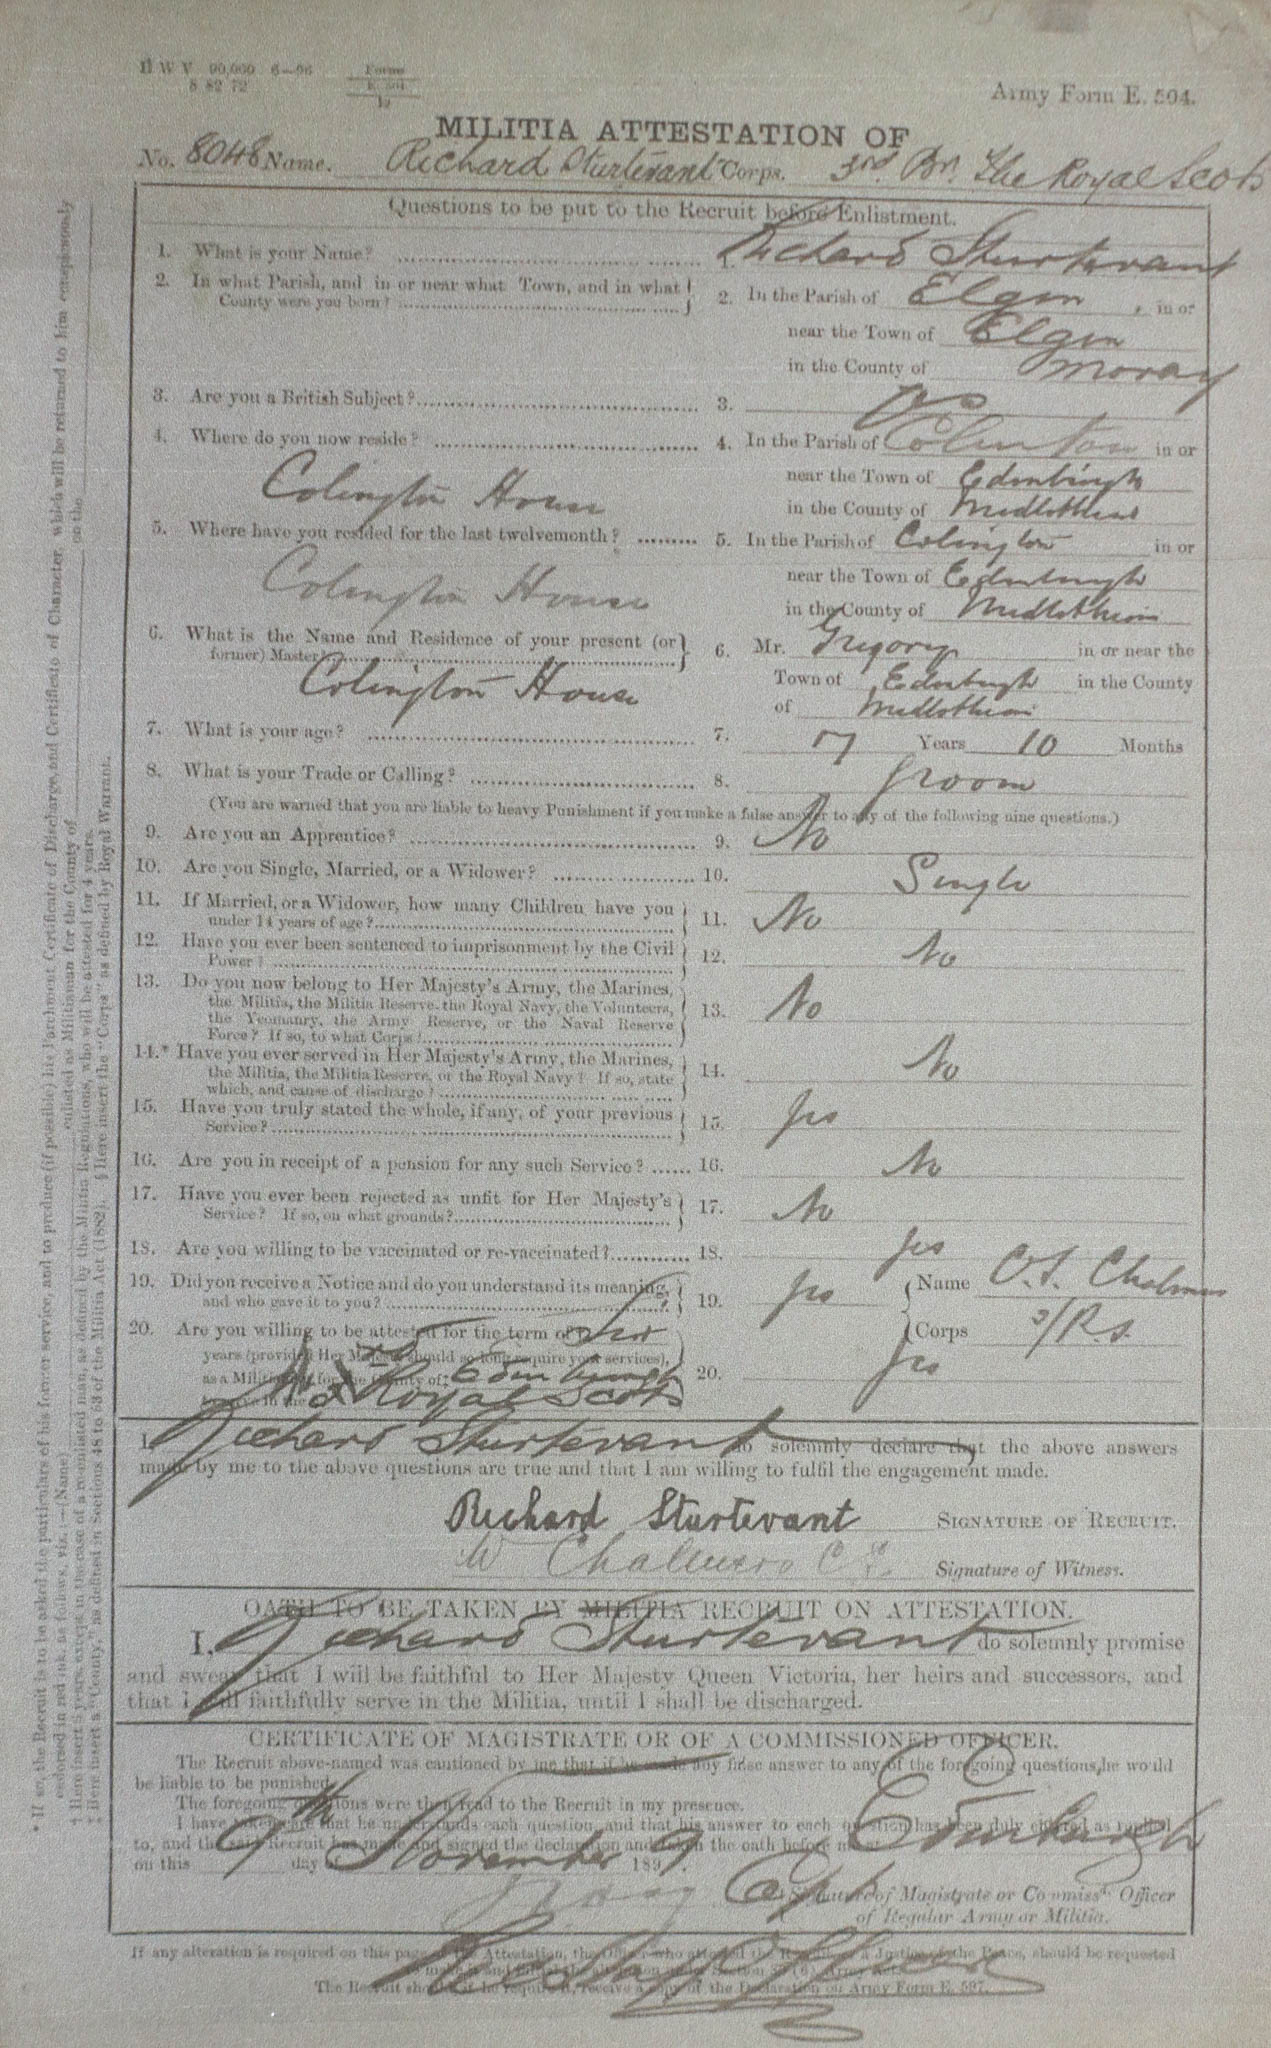 H W V 90,000 6—96 Forms
8 82 72 E. 504
Army Form E. 504.
MILITIA ATTESTATION OF
No. 8048 Name. Richard Sturtevant Corps. 3rd. Bn. The Royal Scots
Questions to be put to the Recruit before Enlistment.
1. What is your Name? 1. Richard Sturtevant
2. In what Parish, and in or near what Town, and in what County were you born? 2. In the Parish of Elgin, in or
near the Town of Elgin
in the County of Moray
3. Are you a British Subject? 3. Yes
4. Where do you now reside? 4. In the Parish of Colinton in or
near the Town of Edinburgh
Colington House in the County of Midlothian
5. Where have you resided for the last twelvemonth? 5. In the Parish of Colington in or
near the Town of Edinburgh
Colington House in the County of Midlothian
6. What is the Name and Residence of your present (or former) Master? 6. Mr. Gregory in or near the
Colington House Town of Edinburgh in the County
of Midlothian
7. What is your age? 7. 17 Years 10 Months
8. What is your Trade or Calling? 8. Groom
(You are warned that you are liable to heavy Punishment if you make a false answer to any of the following nine questions.)
9. Are you an Apprentice? 9. No
10. Are you Single, Married, or a Widower? 10. Single
11. If Married, or a Widower, how many Children have you
under 14 years of age? 11. No
12. Have you ever been sentenced to imprisonment by the Civil
Power? 12. No
13. Do you now belong to Her Majesty's Army, the Marines,
the Militia, the Militia Reserve, the Royal Navy, the Volunteers,
the Yeomanry, the Army Reserve, or the Naval Reserve
Force? If so, to what Corps? 13. No
14.* Have you ever served in Her Majesty's Army, the Marines,
the Militia, the Militia Reserve, or the Royal Navy? If so, state
which, and cause of discharge? 14. No
15. Have you truly stated the whole, if any, of your previous
Service? 15. Yes
16. Are you in receipt of a pension for any such Service? 16. No
17. Have you ever been rejected as unfit for Her Majesty's
Service? If so, on what grounds? 17. No
18. Are you willing to be vaccinated or re-vaccinated? 18. Yes
19. Did you receive a Notice and do you understand its meaning,
and who gave it to you? 19. Yes Name Chalmers
Corps 3/R.S.
20. Are you willing to be attested for the term of
years (provided Her Majesty should so long require your services),
as a Militiaman for the County of Edinburgh
to serve in the Royal Scots 20. Yes
I, Richard Sturtevant do solemnly declare that the above answers
made by me to the above questions are true and that I am willing to fulfil the engagement made.
Richard Sturtevant SIGNATURE OF RECRUIT.
W Chalmers Signature of Witness.
OATH TO BE TAKEN BY MILITIA RECRUIT ON ATTESTATION.
I, Richard Sturtevant do solemnly promise
and swear that I will be faithful to Her Majesty Queen Victoria, her heirs and successors, and
that I will faithfully serve in the Militia, until I shall be discharged.
CERTIFICATE OF MAGISTRATE OR OF A COMMISSIONED OFFICER.
The Recruit above-named was cautioned by me that if he made any false answer to any of the foregoing questions, he would
be liable to be punished.
The foregoing questions were then read to the Recruit in my presence.
I have taken care that he understands each question, and that his answer to each question has been duly entered as replied
to, and the said Recruit has made and signed the declaration and taken the oath before me at Edinburgh
on this 9th day of November 1897.
Capt
Signature of Magistrate or Commissd. Officer
of Regular Army or Militia.
If any alteration is required on this page of the Attestation, the Officer who attested the Recruit, or a Justice of the Peace, should be requested
to make it and initial the alteration under Section
The Recruit should, if he require it, receive a copy of the Declaration on Army Form E. 597.
* If so, the Recruit is to be asked the particulars of his former service, and to produce (if possible) his Parchment Certificate of Discharge, and Certificate of Character, which will be returned to him conspicuously
endorsed in red ink, as follows, viz.:—(Name) enlisted as Militiaman for the County of on the
† Here insert 6 years, except in the case of a re-enlisted man, as defined by the Militia Regulations, who will be attested for 4 years.
‡ Here insert a "County," as defined in Sections 48 to 53 of the Militia Act (1882). § Here insert the "Corps" as defined by Royal Warrant.